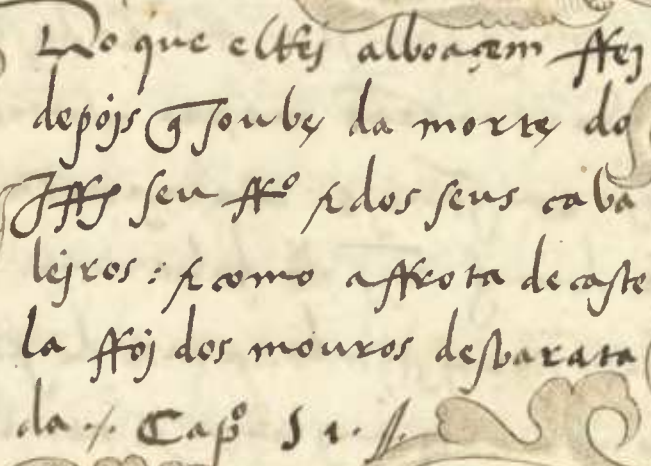 Do que elRei alboaçem ffez
depois q̃ soube da morte do
Iffte seu ffº e dos seus cava
leiros : e como a ffrota de caste
la ffoi dos mouros desbarata
da ./. Capº 51. //.